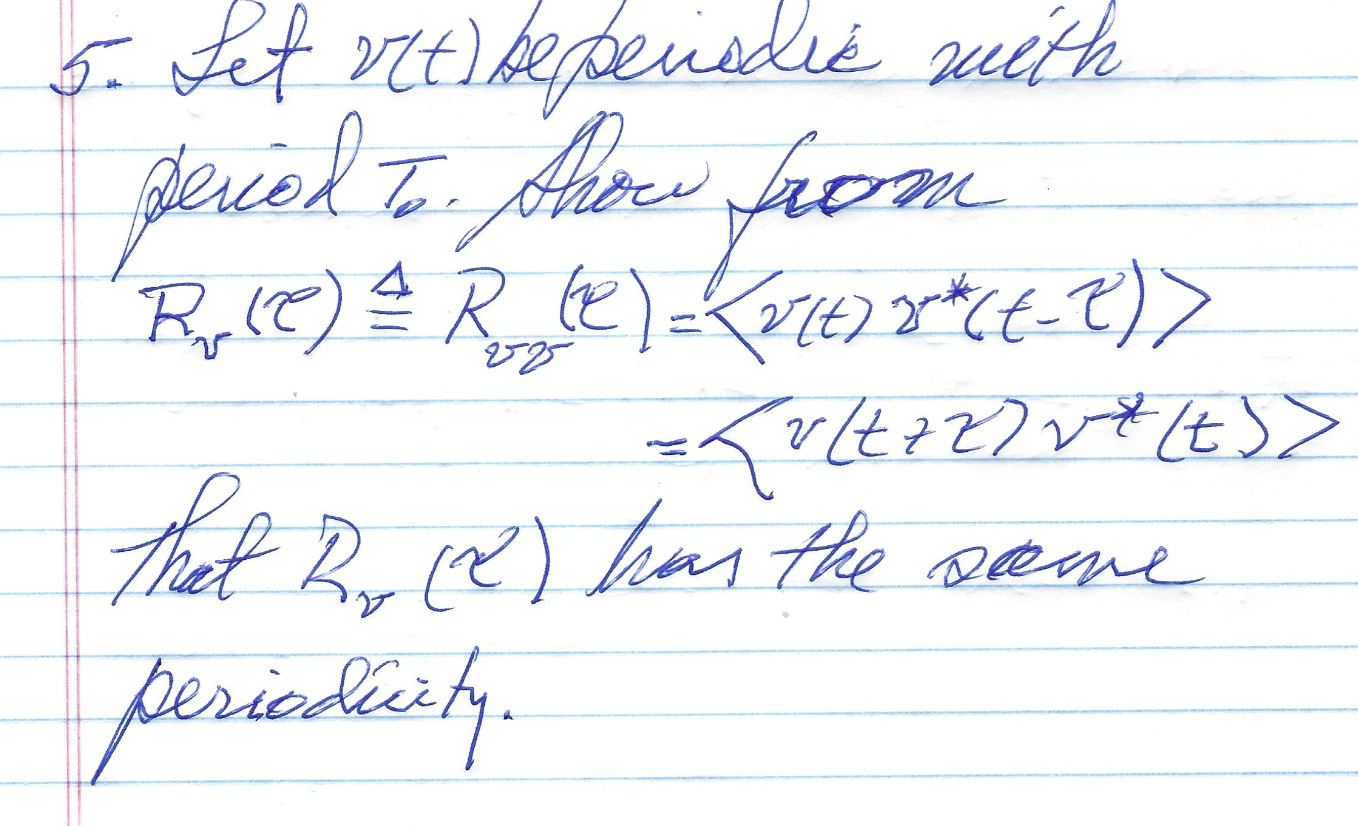 5. Let v(t) be periodic with
period T₀. Show from
R_v(τ) ≜ R_vv(τ) = <v(t) v*(t-τ)>
= <v(t+τ) v*(t)>
that R_v(τ) has the same
periodicity.